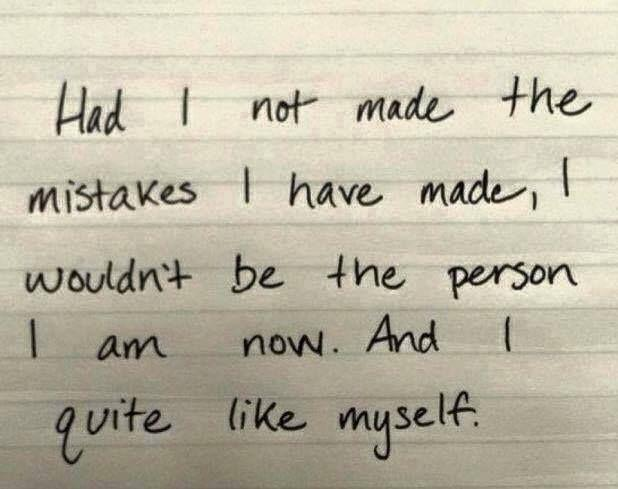 Had I not made the
mistakes I have made, I
wouldn't be the person
I am now. And I
quite like myself.